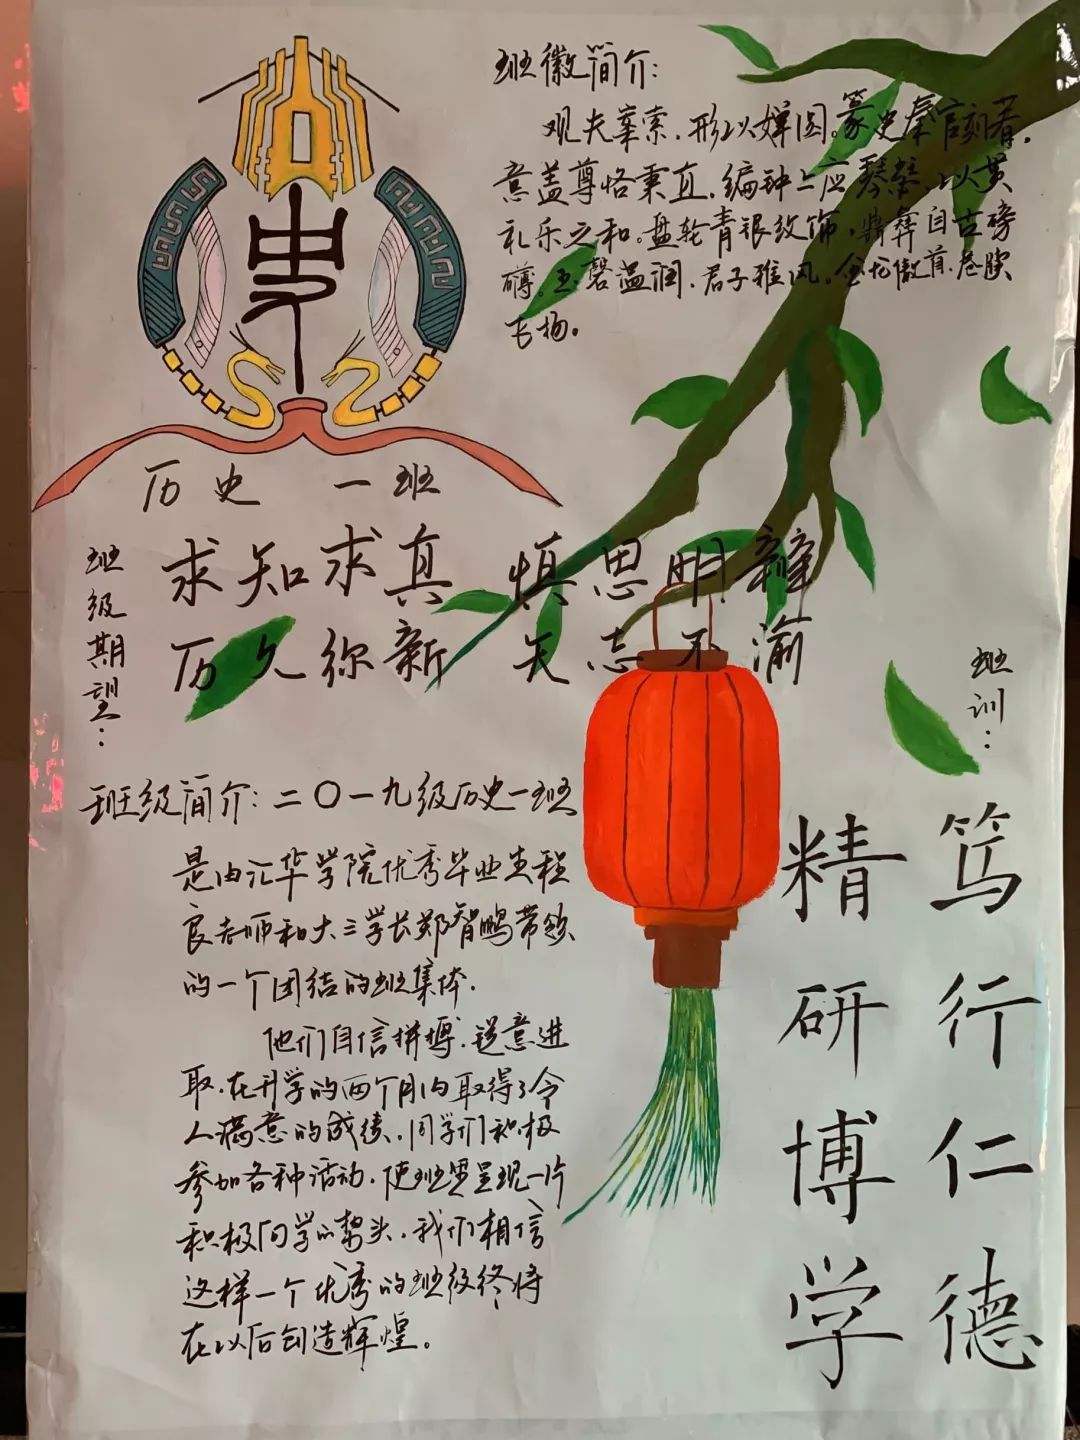 班徽简介:
观夫
形以婵圆。篆史秦官刻著,
意盖尊恪秉直,编钟上应琴瑟,以贯
礼乐之和。盘轮青银纹饰,鼎彝自古磅
礴。玉磬温润,君子雅风。金龙傲首,卷牍
飞扬。
史
历史 一班
班级期望:
求知求真 慎思明辨
历久弥新 矢志不渝
班训:
笃行仁德
精研博学
班级简介:二〇一九级历史一班
是由汇华学院优秀毕业生程
良老师和大三学长郑智鹏带领
的一个团结的班集体.
他们自信拼搏.锐意进
取.在开学的两个月内取得了令
人满意的成绩,同学们积极
参加各种活动,使班里呈现一片
积极向学的势头,我们相信
这样一个优秀的班级终将
在以后创造辉煌。